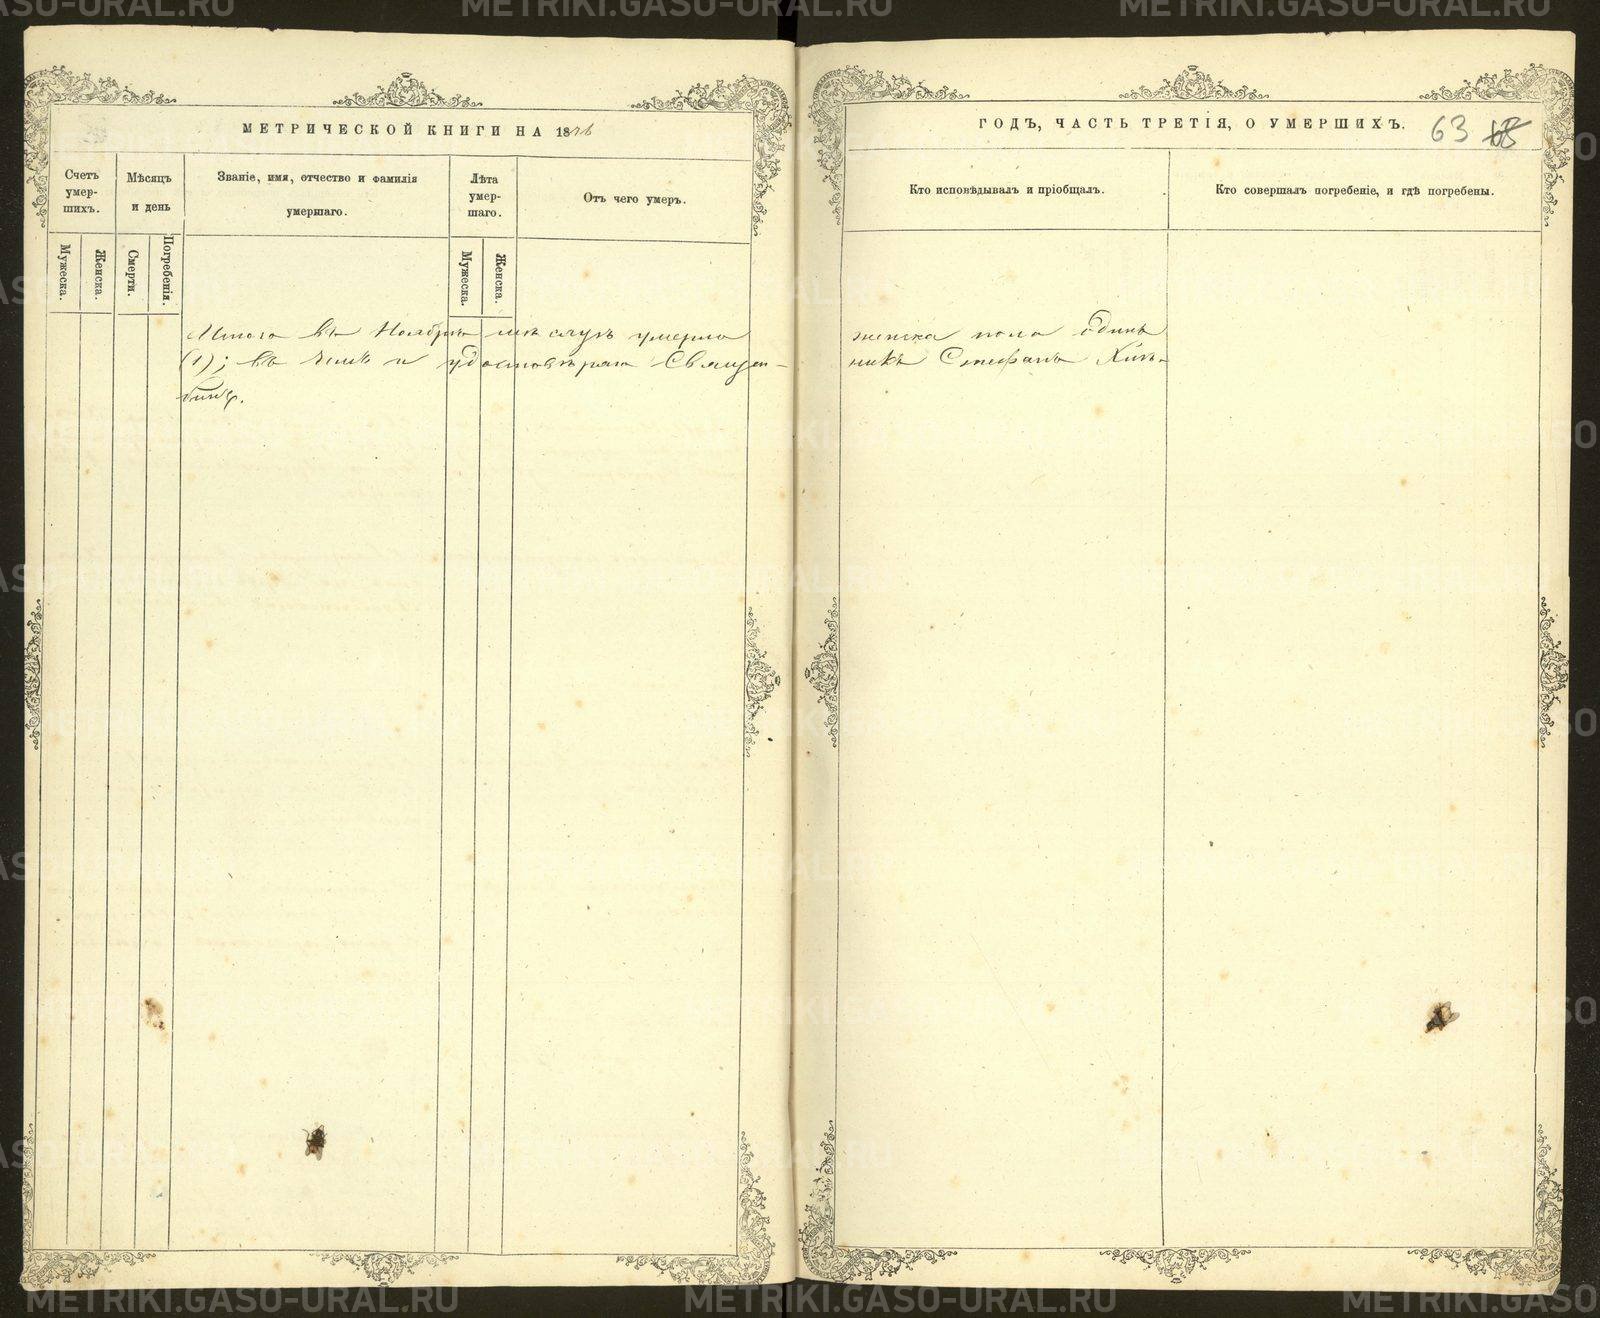 МЕТРИЧЕСКОЙ КНИГИ НА 18
Счетъ умер-
шихъ.
Мѣсяцъ
и день
Званіе, имя, отчество и фамилія
умершаго.
Лѣта
умер-
шаго.
Отъ чего умеръ.
Мужеска.
Женска.
Смерти.
Погребенія.
Мужеска.
Женска.
Итого въ Ноябрѣ мѣсяцѣ умерло
(1); въ чемъ и удостовѣряю Священ-
ГОДЪ, ЧАСТЬ ТРЕТІЯ, О УМЕРШИХЪ.
63
Кто исповѣдывалъ и пріобщалъ.
Кто совершалъ погребеніе, и гдѣ погребены.
женска пола одинъ
никъ Стефанъ
METRIKI.GASO-URAL.RU